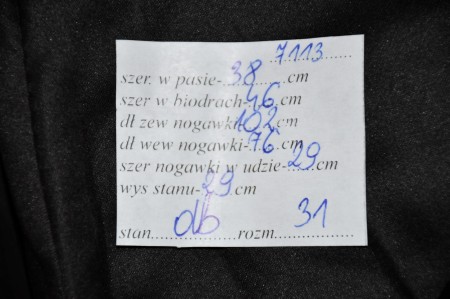 7113
szer. w pasie-38cm
szer w biodrach-46cm
dł zew nogawki-102cm
dł wew nogawki-76cm
szer nogawki w udzie-29cm
wys stanu-29cm
stan......db......rozm......31......